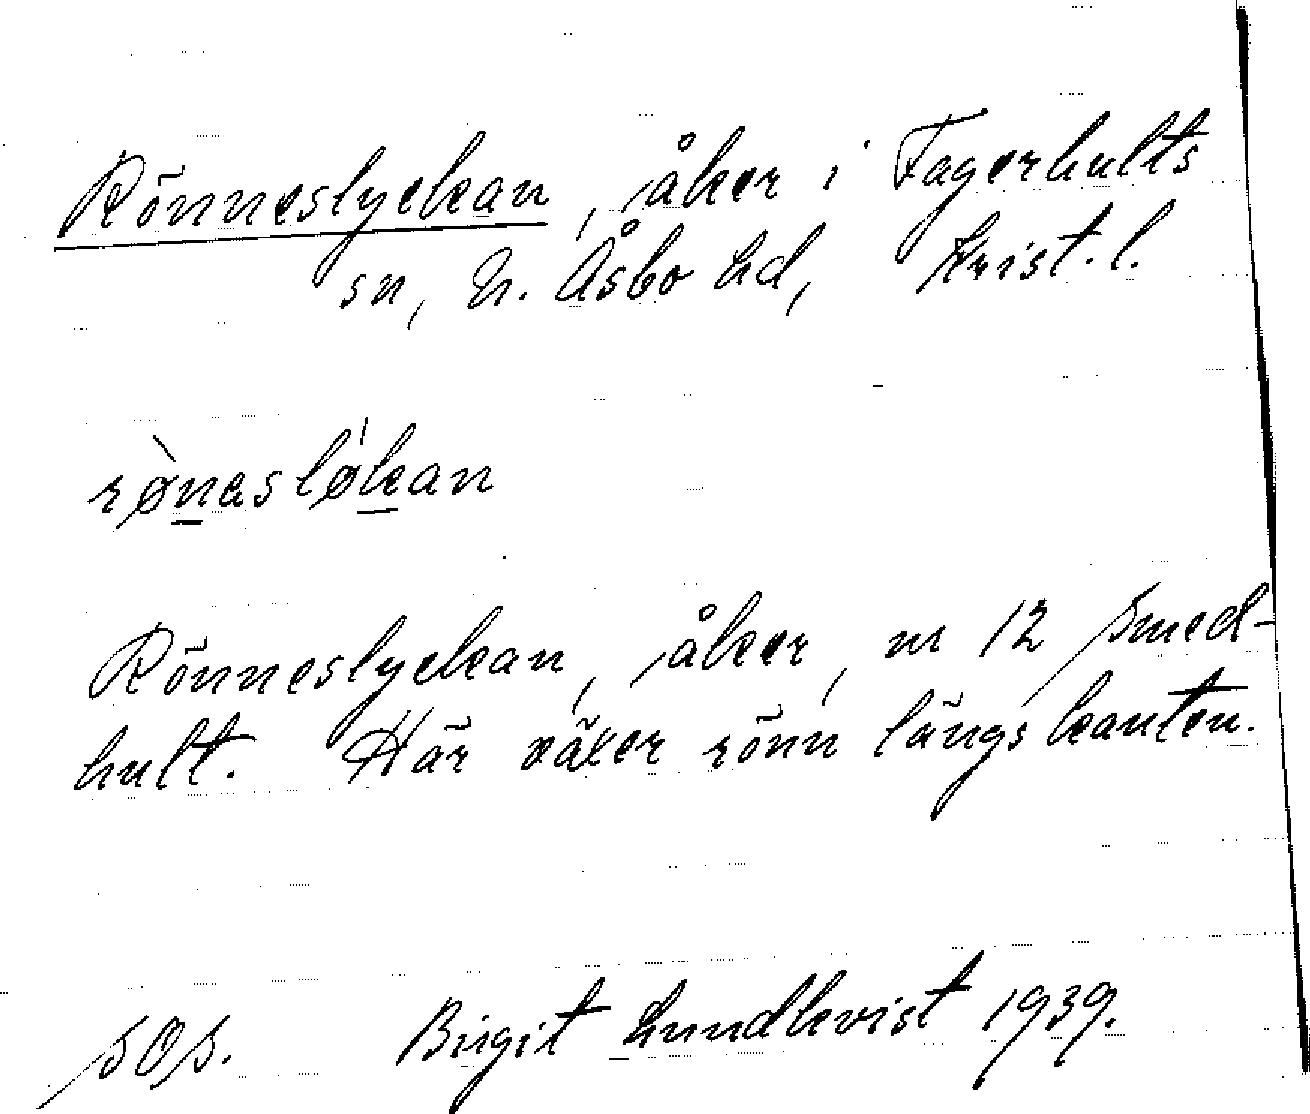 Rönneslyckan, åker i Fagerhults
sn, N. Åsbo hd, Krist. l.
rø̀naslø̍kan
Rönneslyckan, åker, nr 12 Smed-
hult. Här växer rönn längs kanten.
SOS. Birgit Lundkvist 1939.